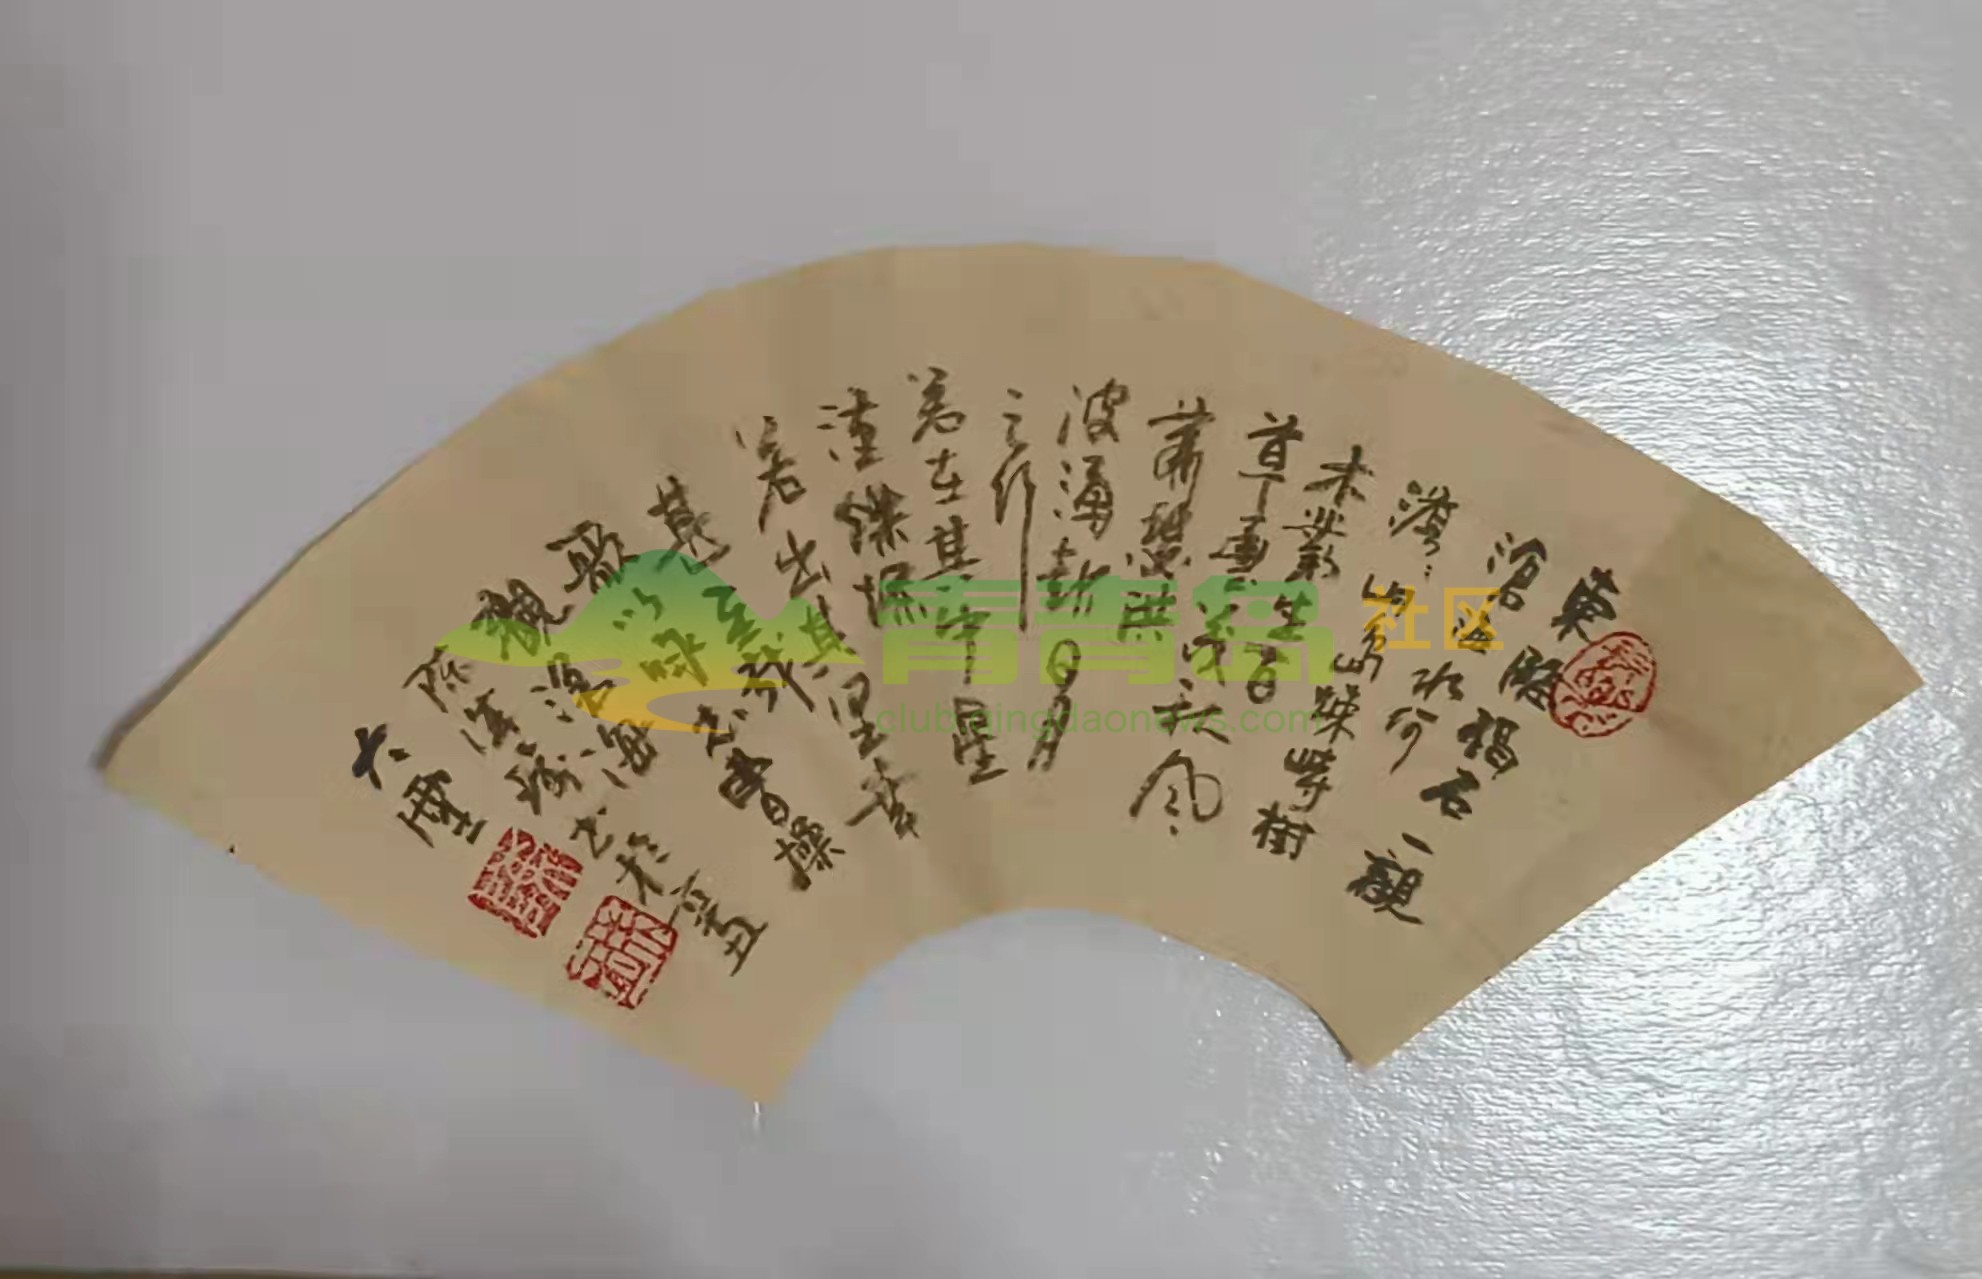 東臨碣石一觀
滄海水何
澹澹山島竦峙樹
木叢生百
草豐茂秋風
蕭瑟洪
波湧起日月
之行
若在其中星
漢燦爛
若出其里幸
甚至哉
歌以咏志曹操
觀滄海
陈 书於辛丑
大
青青岛社区
club.qingdaonews.com